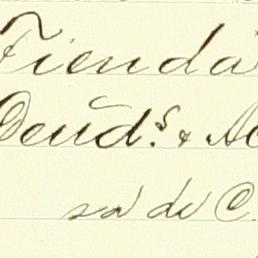 Tienda
Deud.s & A
sa de C